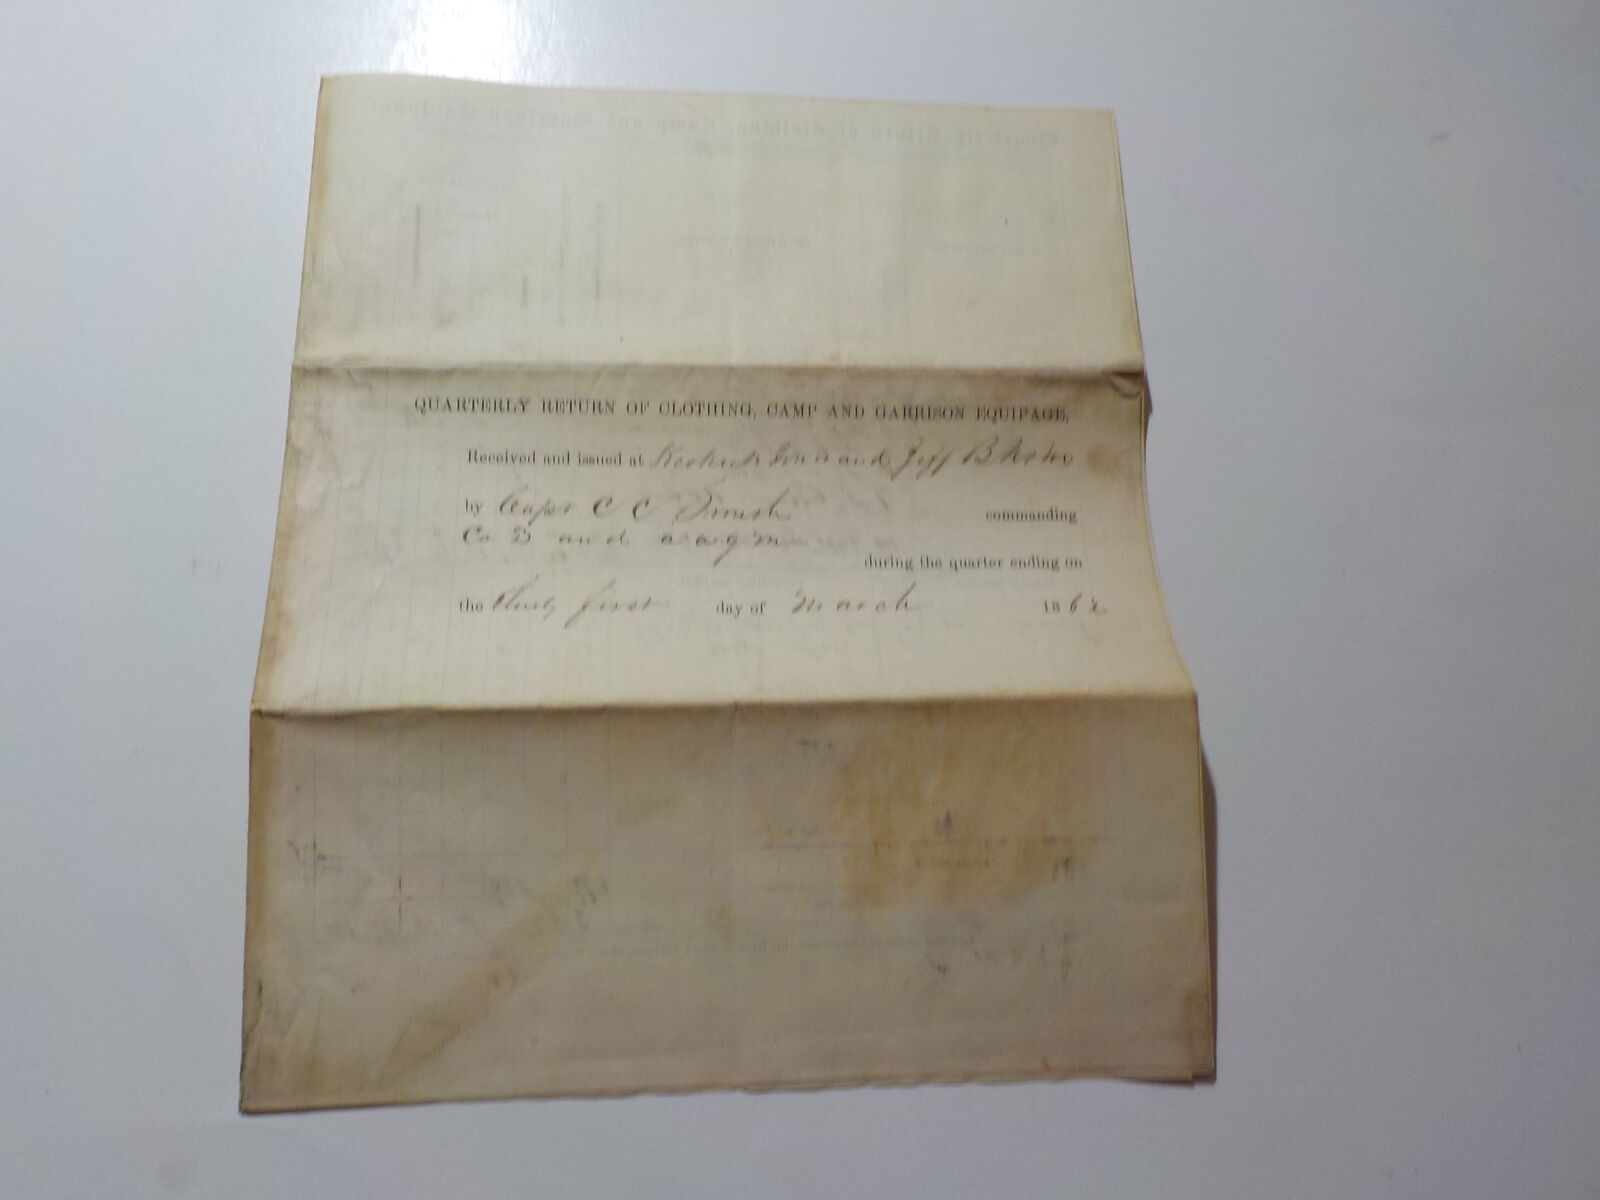 QUARTERLY RETURN OF CLOTHING, CAMP AND GARRISON EQUIPAGE,
Received and issued at Keokuk Iowa and Jeff B
by Capt C C commanding
Co D and a a q m
during the quarter ending on
the thirty first day of March 1862